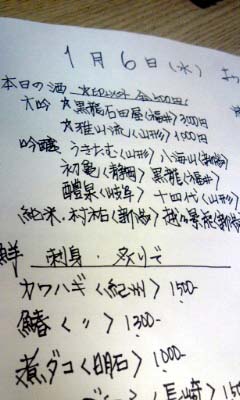 1月6日(水)
本日の酒
大吟 黒龍石田屋〈福井〉3000円
雅山流〈山形〉1000円
吟醸 うきたむ〈山形〉八海山〈新潟〉
初亀〈静岡〉黒龍〈福井〉
醴泉〈岐阜〉十四代〈山形〉
純米・村祐〈新潟〉
鮮 刺身・炙りで
カワハギ〈紀州〉1500-
鰆〈〃〉1300-
煮ダコ〈明石〉1000-
〈長崎〉150